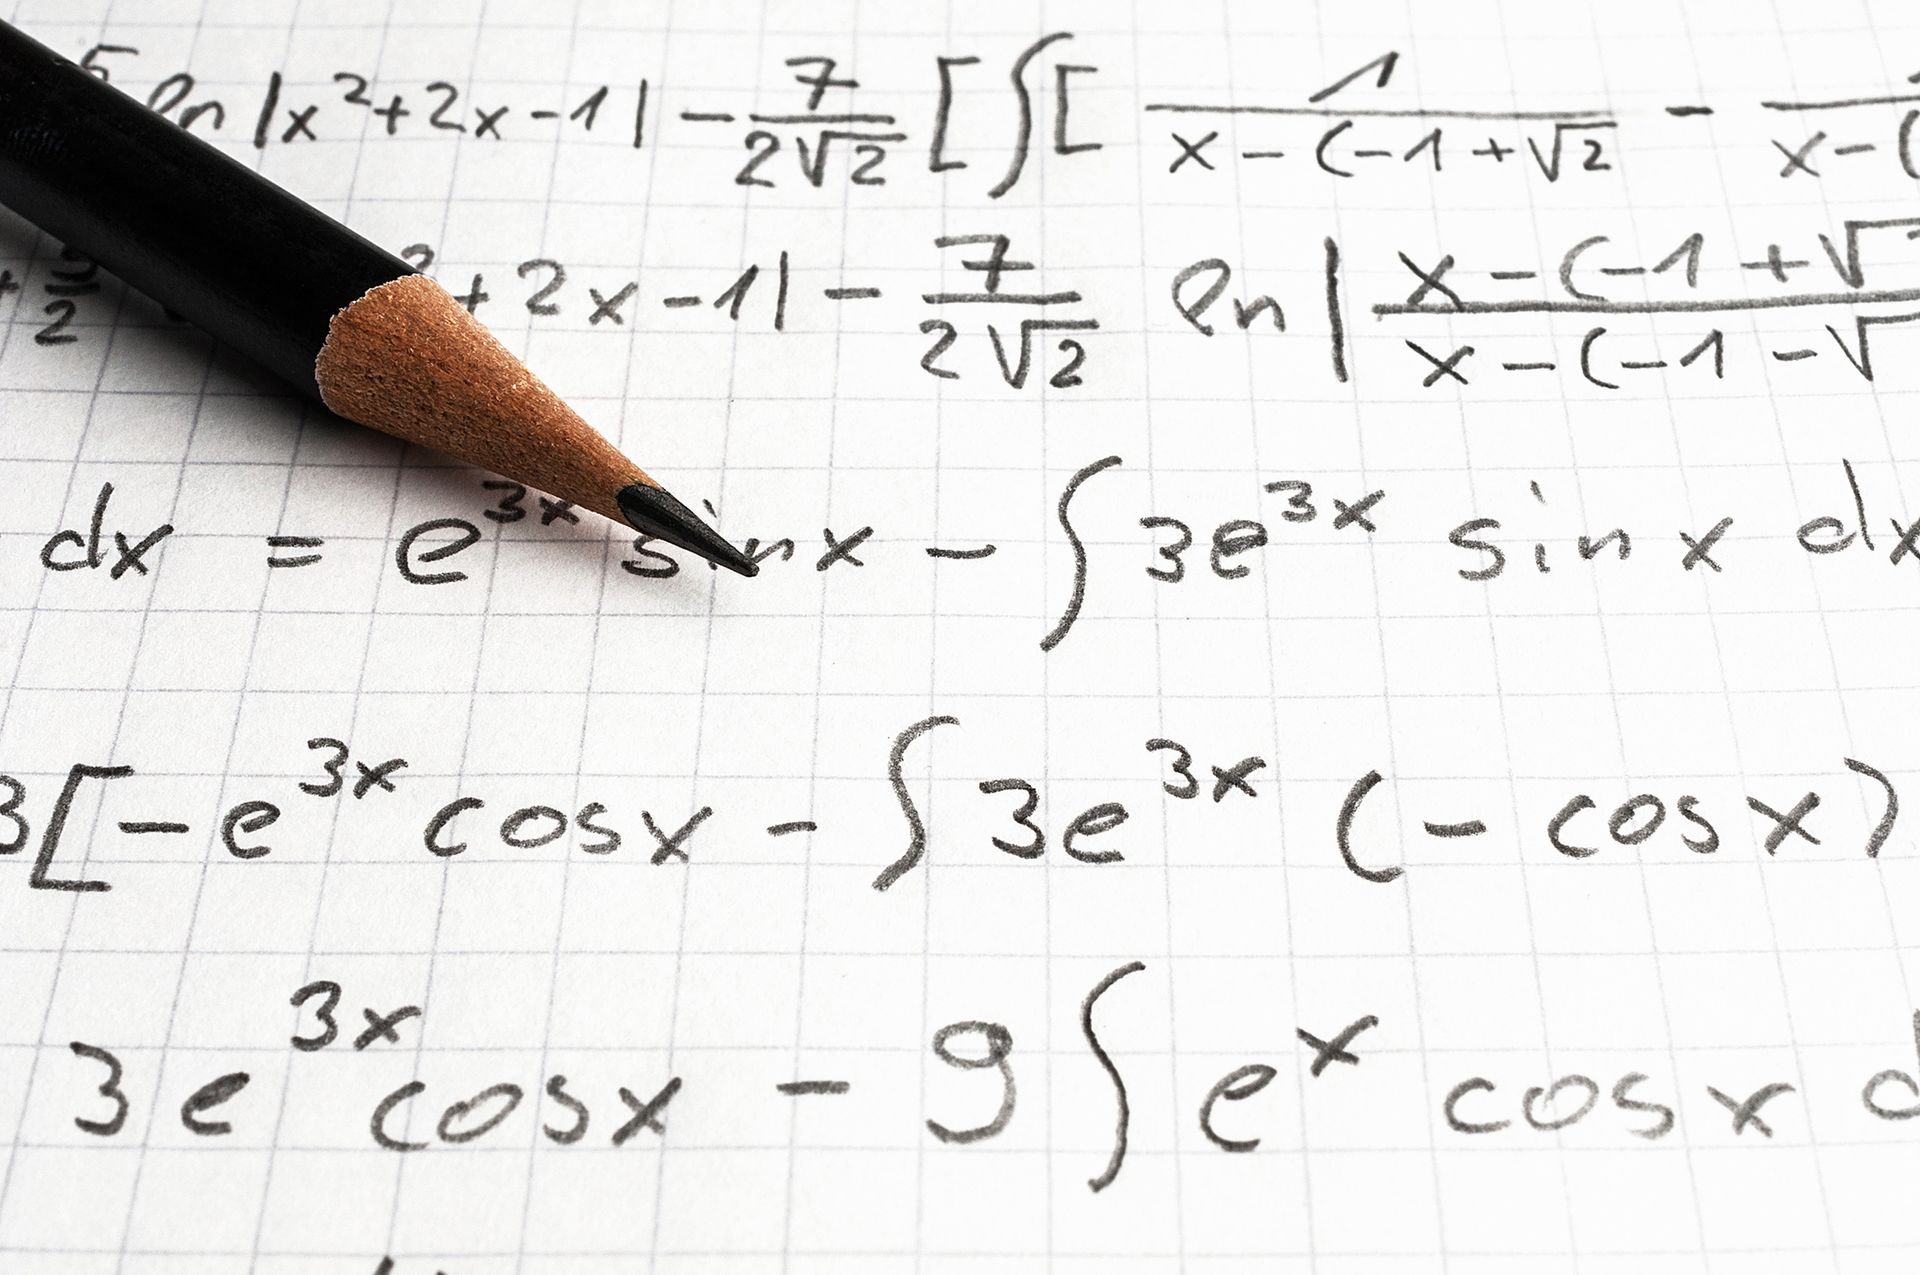 5 ln |x²+2x-1| - 7/(2√2) [∫[ 1/(x-(-1+√2) - /(x-(
+ 5/2 ² + 2x -1| - 7/(2√2) ln | (x-(-1+√)/(x-(-1-√)
dx = e^(3x) sin x - ∫ 3e^(3x) sin x dx
3[-e^(3x) cos x - ∫ 3e^(3x) (-cos x)
3e^(3x) cos x - 9 ∫ e^x cos x d